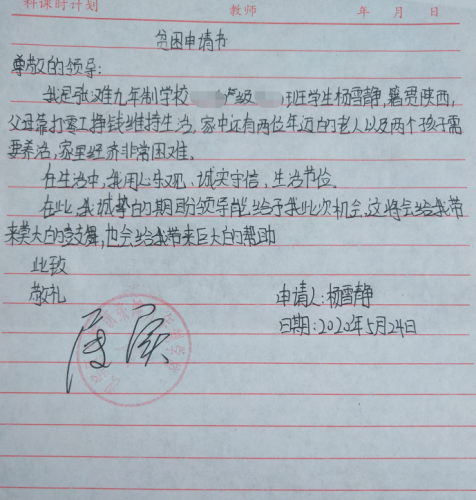 科课时计划 教师 年 月 日
贫困申请书
尊敬的领导:
我是张滩九年制学校 级 班学生杨雪静,籍贯陕西,
父母靠打零工挣钱维持生活,家中还有两位年迈的老人以及两个孩子需
要养活,家里经济非常困难。
在生活中,我用心求观、诚实守信、生活节俭。
在此,我诚挚的期盼领导能给予我此次机会,这将会给我带
来莫大的鼓舞,也会给我带来巨大的帮助
此致
敬礼
申请人:杨雪静
日期:2020年5月24日